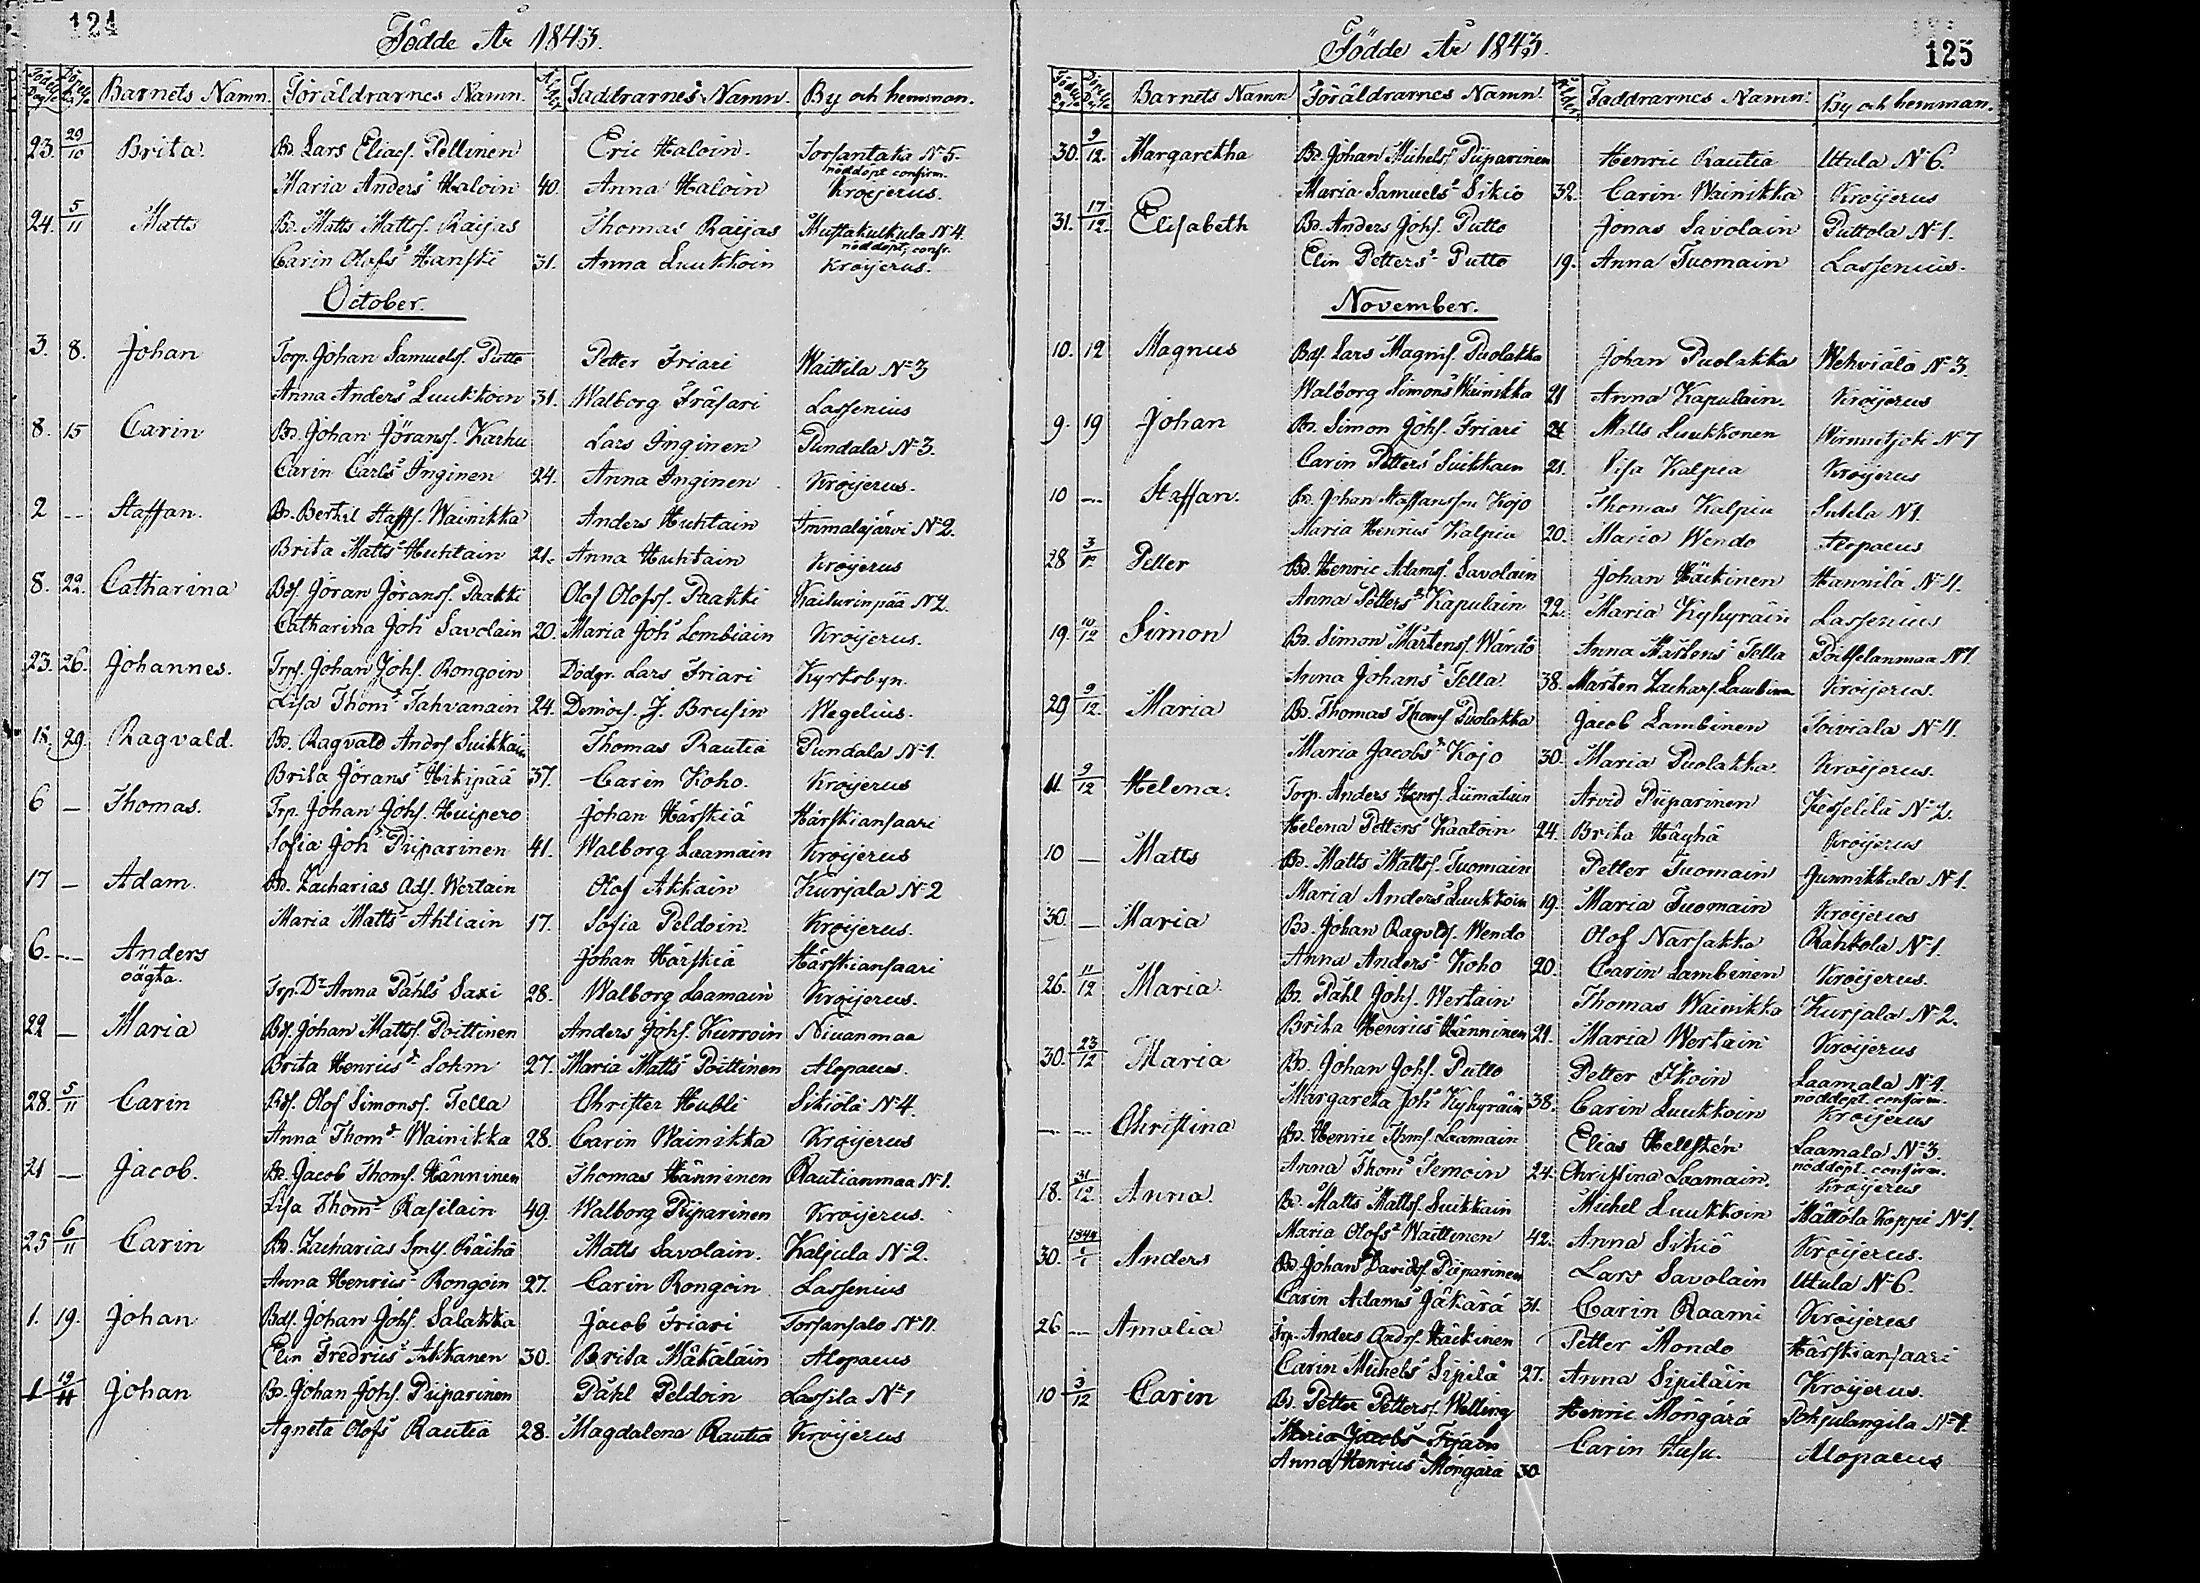 124
Födde År 1843.
Födelse Dag Döpelse Dag Barnets Namn. Föräldrarnes Namn. Ålder Faddrarnes Namn. By och hemman.
23. 29/10 Brita. Bd. Lars Eliaf. Pellinen Eric Haloin. Torsantaka No 5.
nöddöpt confirm.
Maria Anders Haloin 40. Anna Haloin Kroijerus.
24. 5/11 Matts Bd. Matts Mattsf. Raijas Thomas Raijas Mustakulkula No 4.
nöddöpt, conf.
Carin Olofs Hanski 31. Anna Luukkoin Kroijerus.
October.
3. 8. Johan Torp. Johan Samuelsf. Putto Petter Friari Waittila No 3
Anna Anders Luukkoin 31. Walborg Fräsari Lassenius
8. 15 Carin Bd. Johan Jöransf. Karhu Lars Inginen Pundala No 3.
Carin Carls Inginen 24. Anna Inginen Kroijerus.
2 -- Staffan. Bd. Bertil Staffs. Wainikka Anders Huhtain Immalajärvi No 2.
Brita Matts Huhtain 21. Anna Huhtain Kroijerus
8. 22. Catharina Bdf. Jöran Jöransf. Paakki Olof Olofsf. Paakki Kailurinpää No 2.
Catharina Joh Savolain 20. Maria Joh Lombiain Kroijerus.
23. 26. Johannes. Trp. Johan Johf. Rongoin Dödgr. Lars Friari Kyrkobyn.
Lisa Thoms Tahvanain 24. Demois. J. Brusin Wegelius.
18. 29. Ragvald. Bd. Ragvald Andrs Suikkain Thomas Rautia Pundala No 1.
Brita Jörans Hikipää 37. Carin Koho. Kroijerus
6 — Thomas. Trp. Johan Johf. Huipero Johan Härskiä Härskiansaari
Sofia Joh Piiparinen 41. Walborg Laamain Kroijerus
17 — Adam. Bd. Zacharias Adf. Wertain Olof Akkain Kurjala No 2
Maria Matts Ahtiain 17. Sofia Peldoin. Kroijerus.
6. -- Anders Johan Härskiä Härskiansaari
oägta. Trp. Dr Anna Påhls Saxi 28. Walborg Laamain Kroijerus.
22 — Maria Bdf. Johan Mattsf. Poittinen Anders Johf. Kurroin Niuanmaa
Brita Henrics Lohm 27. Maria Matts Poittinen Alopaeus.
28. 5/11 Carin Bdf. Olof Simonsf. Tella Christer Hubli Sikiölä No 4.
Anna Thoms Wainikka 28. Carin Wainikka Kroijerus
21 — Jacob. Bd. Jacob Thomf. Hänninen Thomas Hänninen Rautianmaa No 1.
Lisa Thoms Rasilain 49. Walborg Piiparinen Kroijerus.
25 6/11 Carin Bd. Zacharias Smf. Räihä Matts Savolain. Kaljula No 2.
Anna Henrics Rongoin 27. Carin Rongoin Lassenius
1. 19. Johan Bdf. Johan Johf. Salakka Jacob Friari Torsansalo No 11.
Elin Fredrics Akkanen 30. Brita Mäkäläin Alopaeus
1 19/11 Johan Bd. Johan Johf. Piiparinen Påhl Peldoin Lassila No 1
Agneta Olofs Rautia 28. Magdalena Rautia Kroijerus
125
Födde År 1843.
Födelse Dag Döpelse Dag Barnets Namn Föräldrarnes Namn Ålder Faddrarnes Namn. By och hemman.
30. 9/12. Margaretha Bd. Johan Michelsf. Piiparinen Henric Rautia Uttula No 6.
Maria Samuels Sikiö 32. Carin Wainikka Kroijerus
31. 17/12. Elisabeth Bd. Anders Johf. Putto Jonas Savolain Puttola No 1.
Elin Petters Putto 19. Anna Tuomain Lassenius.
November.
10. 12 Magnus Bdf. Lars Magnf. Puolakka Johan Puolakka Wehviälä No 3.
Walborg Simons Wainikka 21 Anna Kapulain. Kroijerus
9. 19 Johan Bd. Simon Johf. Friari 24 Matts Luukkonen Wirmutjoki No 7
Carin Petters Suikkain 21. Lisa Kalpia Kroijerus
10 -- Staffan. Bd. Johan Staffansson Kojo Thomas Kalpia Sutela No 1.
Maria Henrics Kalpia 20. Maria Wendo Alopaeus
28 3/12 Petter Bd. Henric Adamsf. Savolain Johan Häikinen Hannila No 4.
Anna Petters Kapulain 22. Maria Kyhyräin Lassenius
19. 10/12 Simon Bd. Simon Mårtensf. Wando Anna Mårtens Tella Poitselanmaa No 1.
Anna Johans Tella. 38. Mårten Zacharf. Lambinen Kroijerus.
29 9/12. Maria Bd. Thomas Thomf. Puolakka Jacob Lambinen Toiviala No 4.
Maria Jacobs Kojo 30. Maria Puolakka. Kroijerus.
11. 9/12 Helena. Torp. Anders Henrf. Liimatain Arvid Piiparinen Kesselilä No 2.
Helena Petters Kaatoin 24. Brita Häyhä Kroijerus
10 — Matts Bd. Matts Mattsf. Tuomain Petter Tuomain Junnikkala No 1.
Maria Anders Luukkoin 19. Maria Tuomain Kroijerus
30. — Maria Bd. Johan Ragvldf. Wendo Olof Narsakka Rahkola No 1.
Anna Anders Koho 20. Carin Lambinen Kroijerus.
26. 11/12 Maria Bd. Påhl Johf. Wertain Thomas Wainikka Kurjala No 2.
Brita Henrics Hänninen 21. Maria Wertain Kroijerus
30. 23/12 Maria Bd. Johan Johf. Putto Petter Ikoin Laamala No 4.
nöddöpt. confirm.
Margareta Joh Kyhyräin 38. Carin Luukkoin Kroijerus
-- -- Christina Bd. Henric Thmf. Laamain Elias Hellstén Laamala No 3.
nöddöpt. confirm.
Anna Thoms Temoin 24. Christina Laamain. Kroijerus
18. 31/12 Anna. Bd. Matts Mattsf. Suikkain Michel Luukkoin Mättölä Koppi No 1.
Maria Olofs Waittinen 42. Anna Sikiö Kroijerus.
30. 1844 6/1 Anders Bd. Johan Davidsf. Piiparinen Lars Savolain Uttula No 6.
Carin Adams Jäkärä 31. Carin Raami Kroijerus
26 -- Amalia Trp. Anders Andrf. Häikinen Petter Mondo Härskiansaari
Carin Michels Sipilä 27. Anna Sipiläin Kroijerus.
10 3/12 Carin Bd. Petter Pettersf. Welling Henric Möngärä Pohjalangila No 1.
Maria Jacobs
Carin Husu. Alopaeus
Anna Henrics Möngärä 30